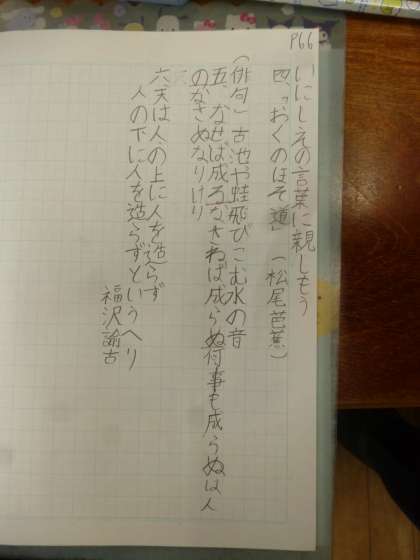 P66
いにしえの言葉に親しもう
四、「おくのほそ道」（松尾芭蕉）
（俳句）古池や蛙飛びこむ水の音
五、なせば成るなさねば成らぬ何事も成らぬは人
のなさぬなりけり
六、天は人の上に人を造らず
人の下に人を造らずといへり
福沢諭吉